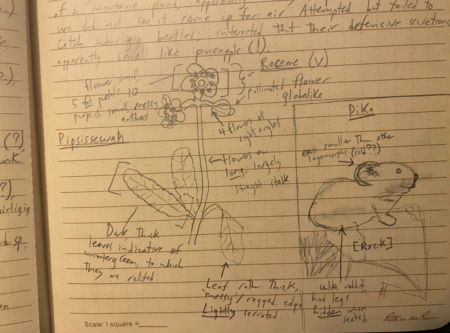 of a montane pond, apparently
we did not see it come up for air. Attempted but failed to
catch whirligig beetles, interested that their defensive secretions
apparently smell like pineapple (!).
Raceme (V)
flower small
5 petals 10
purplish small messy
anthers
pollinated flower
globelike
Pipsissewah
4 flowers at
right angles
Flowers on
long, largely
straight stalk
Dark Thick
leaves indicative of
wintergreen, to which
They are related
Leaf rather Thick,
messy/ragged edge
Lightly serrated
Pika
ears smaller Than other
lagomorphs (cold??)
[Rock]
unlike rabbit,
hind legs
hidden when
seated
(?)
(?)
Scale: 1 square =